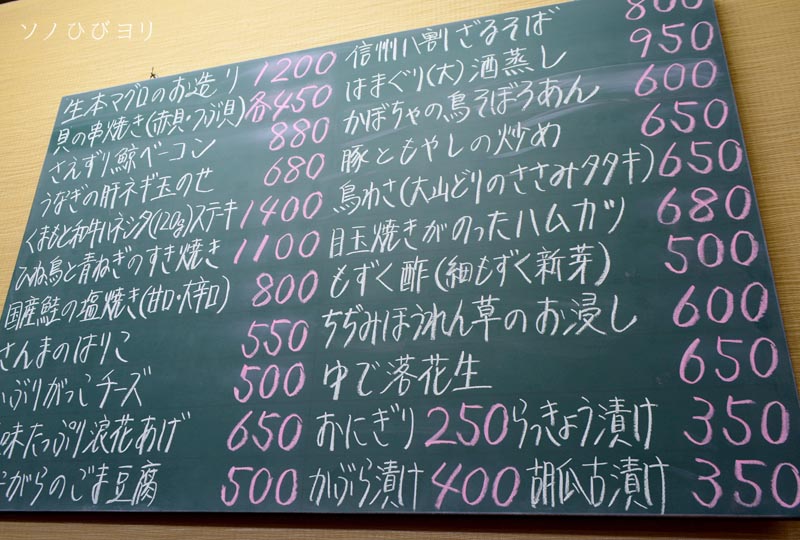 ソノひびヨリ
生本マグロのお造り 1200
貝の串焼き(赤貝・つぶ貝) 各450
さえずり鯨ベーコン 880
うなぎの肝ネギ玉のせ 680
くまもと和牛ハネシタ(120g)ステーキ 1400
ひね鳥と青ねぎのすき焼き 1100
国産鮭の塩焼き(甘口・大辛口) 800
さんまのはりこ 550
いぶりがっこチーズ 500
味たっぷり浪花あげ 650
がらのごま豆腐 500
信州八割ざるそば 800
はまぐり(大)酒蒸し 950
かぼちゃの鳥そぼろあん 600
豚ともやしの炒め 650
鳥わさ(大山どりのささみタタキ) 650
目玉焼きがのったハムカツ 680
もずく酢(細もずく新芽) 500
ちぢみほうれん草のお浸し 600
ゆで落花生 650
おにぎり 250 らっきょう漬け 350
かぶら漬け 400 胡瓜古漬け 350